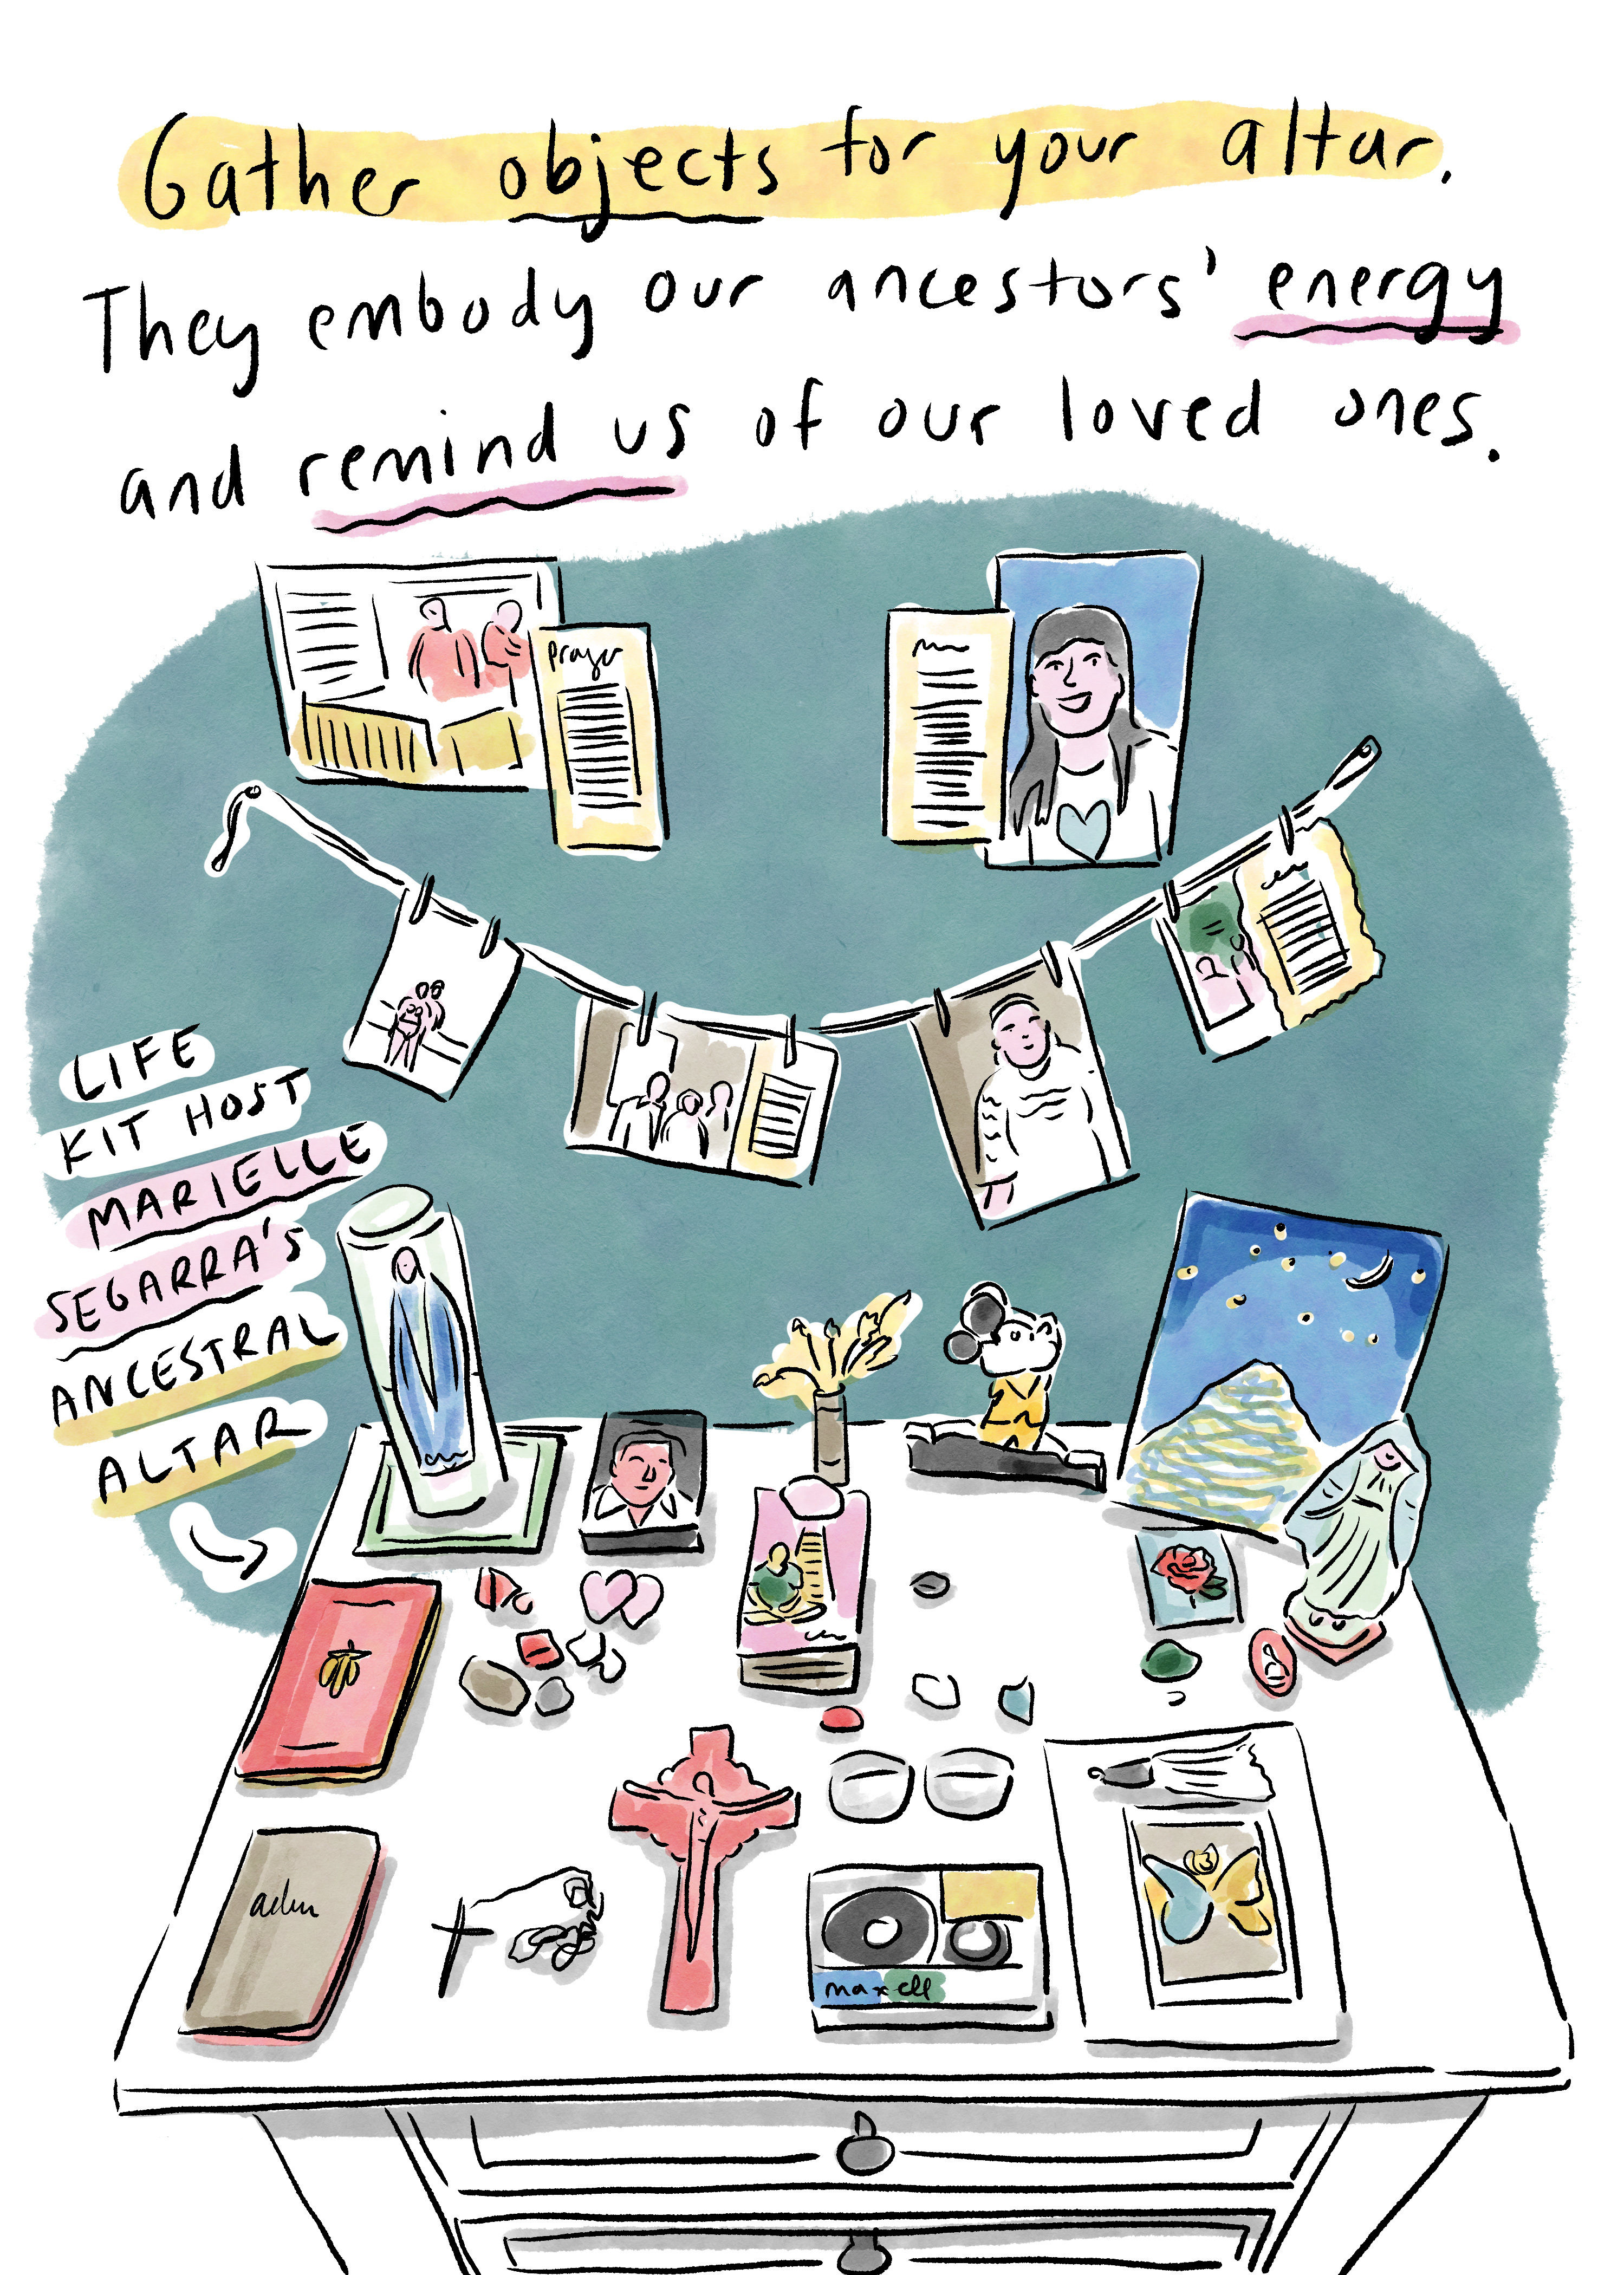 Gather objects for your altar.
They embody our ancestors' energy
and remind us of our loved ones.
prayer
LIFE
KIT HOST
MARIELLE
SEGARRA'S
ANCESTRAL
ALTAR
maxell